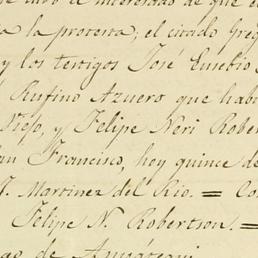 el interesado de que e
a la protesta; el citado Greg
y los testigos José Eusebio
Rufino Azuero que habi
Viejo, y Felipe Neri Rober
San Francisco, hoy quince de
J. Martinez del Rio. = Co
Felipe N. Robertson. =
de Amunátegui